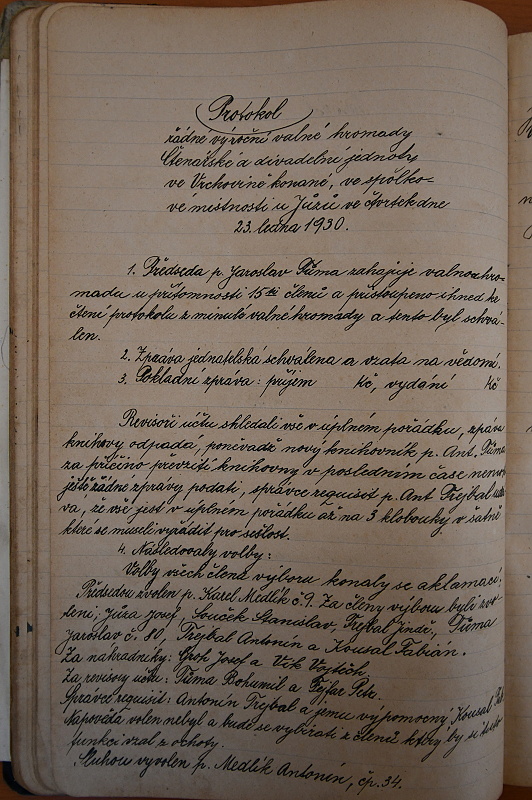 Protokol
řádné výroční valné hromady
Čtenářské a divadelní jednoty
ve Vrchovině konané, ve spolko-
vé místnosti u Jůzů ve čtvrtek dne
23. ledna 1930.
1. Předseda p. Jaroslav Tůma zahajuje valnou hro-
madu u přítomnosti 15ti členů a přistoupeno ihned ke
čtení protokolu z minulé valné hromady a tento byl schvá-
len.
2. Zpráva jednatelská schválena a vzata na vědomí.
3. Pokladní zpráva: příjem Kč, vydání Kč
Revisoři účtu shledali vše v úplném pořádku, zpráva
knihovny odpadá, poněvadž nový knihovník p. Ant. Tůma
za příčinou převzetí knihovny v posledním čase
ještě žádné zprávy podati, správce requisit p. Ant Trejbal
va, že vší jest v uplném pořádku až na 3 klobouky v šatně
které se museli vyřádit pro sešlost.
4. Následovaly volby:
Volby všech členů výboru konaly se aklamací.
Předsedou zvolen p. Karel Medlík č. 9. Za členy výboru byli zvo-
leni; Jůza Josef, Souček Stanislav, Trejbal Jindř., Tůma
Jaroslav č. 80, Trejbal Antonín a Kousal Fabián.
Za náhradníky: Groh Josef a Vojtěch.
Za revisory účtu: Tůma Bohumil a Fejfar Petr.
Správce requisit: Antonín Trejbal a jemu výpomocný Kousal
Napověda volen nebyl a bude se vybírati z členů který by se
funkci vzal z ochoty.
Sluhou vyvolen p. Medlík Antonín, čp. 34.